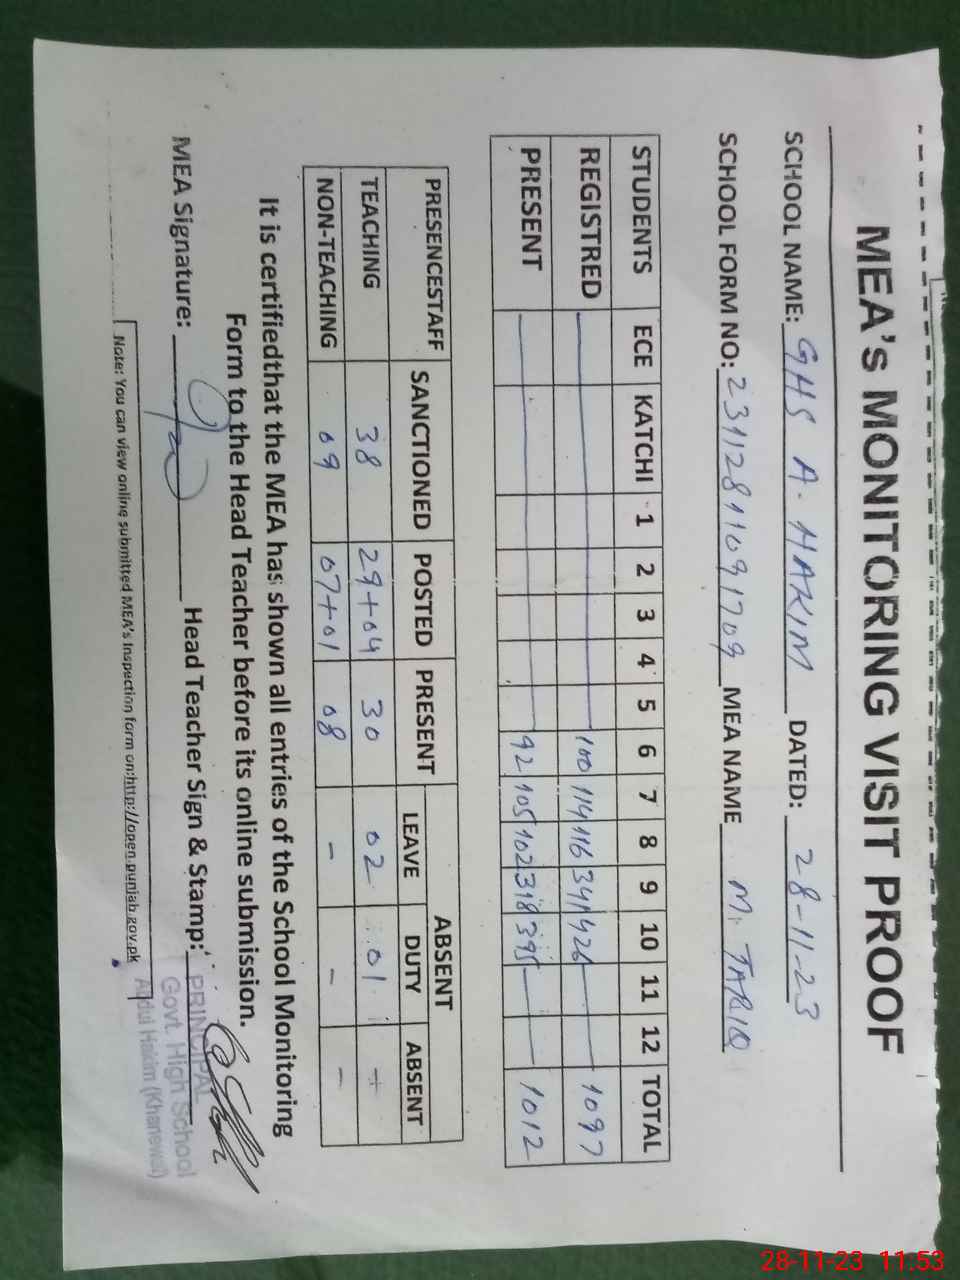 MEA's MONITORING VISIT PROOF
SCHOOL NAME: GHS A. HAKIM DATED: 28-11-23
SCHOOL FORM NO: 23112811091709 MEA NAME M. TARIQ
STUDENTS ECE KATCHI 1 2 3 4 5 6 7 8 9 10 11 12 TOTAL
REGISTRED 100 114 116 341 426 1097
PRESENT 92 105 102 318 395 1012
PRESENCESTAFF SANCTIONED POSTED PRESENT ABSENT
LEAVE DUTY ABSENT
TEACHING 38 29+04 30 02 01 -
NON-TEACHING 09 07+01 08 - - -
It is certifiedthat the MEA has shown all entries of the School Monitoring
Form to the Head Teacher before its online submission.
MEA Signature: Head Teacher Sign & Stamp:
PRINCIPAL
Govt. High School
Abdul Hakim (Khanewal)
Note: You can view online submitted MEA's Inspection form on:http://open.punjab.gov.pk
28-11-23 11:53